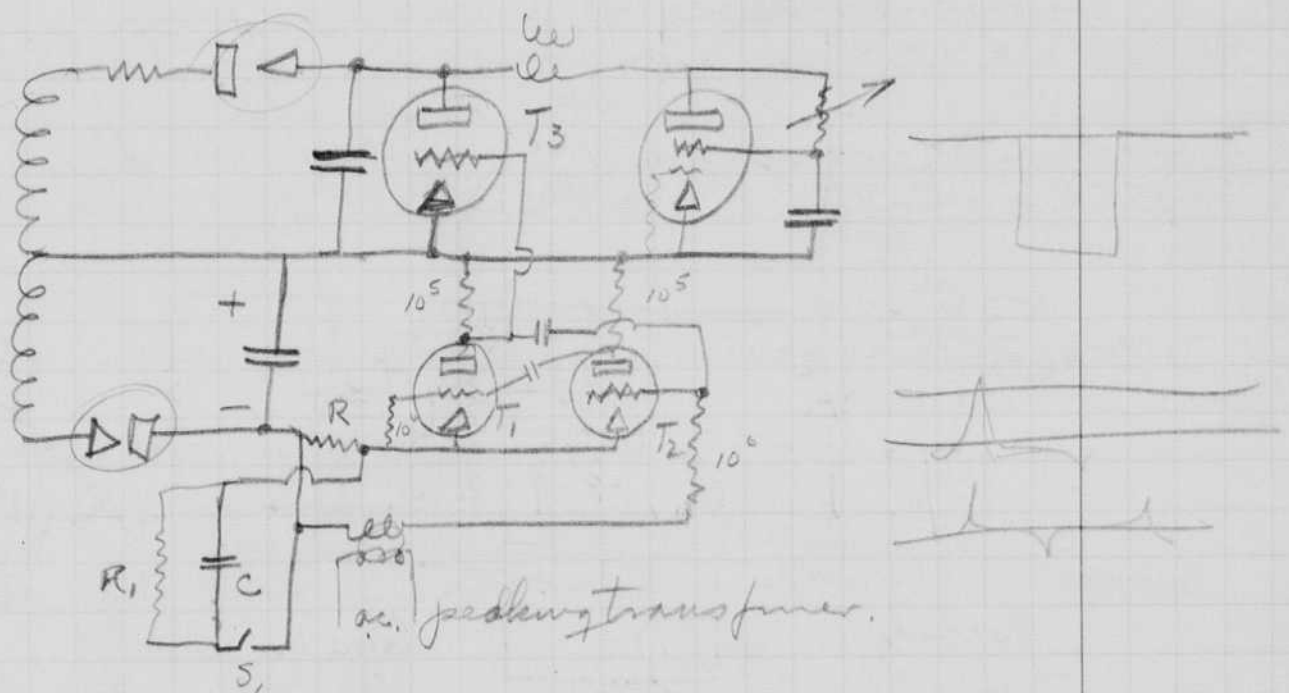 T3
10^5
10^5
+
-
R
T1
T2
10^6
R1
C
S1
a.c. peaking transformer.